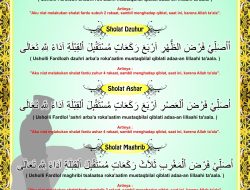 Artinya :
"Aku niat melakukan shalat fardu subuh 2 rakaat, sambil menghadap qiblat, saat ini, karena Allah ta'ala"
Sholat Dzuhur
اُصَلِّيْ فَرْضَ الظُّهْرِ اَرْبَعَ رَكَعَاتٍ مُسْتَقْبِلَ الْقِبْلَةِ اَدَاءً لِلّٰهِ تَعَالَى
( Usholli Fardlodh dzuhri arba'a roka'aatim mustaqbilal qiblati adaa-an lillaahi ta'aala. )
Artinya :
"Aku niat melakukan shalat fardu dzuhur 4 rakaat, sambil menghadap qiblat, saat ini, karena Allah ta'ala"
Sholat Ashar
اُصَلِّيْ فَرْضَ الْعَصْرِ اَرْبَعَ رَكَعَاتٍ مُسْتَقْبِلَ الْقِبْلَةِ اَدَاءً لِلّٰهِ تَعَالَى
( Usholli Fardlol 'ashri arba'a roka'aatim mustaqbilal qiblati adaa-an lillaahi ta'aala. )
Artinya :
"Aku niat melakukan shalat fardu ashar 4 rakaat, sambil menghadap qiblat, saat ini, karena Allah ta'ala"
Sholat Maghrib
اُصَلِّيْ فَرْضَ الْمَغْرِبِ ثَلَاثَ رَكَعَاتٍ مُسْتَقْبِلَ الْقِبْلَةِ اَدَاءً لِلّٰهِ تَعَالَى
( Usholli Fardlol maghribi tsalaatsa roka'aatim mustaqbilal qiblati adaa-an lillaahi ta'aala. )